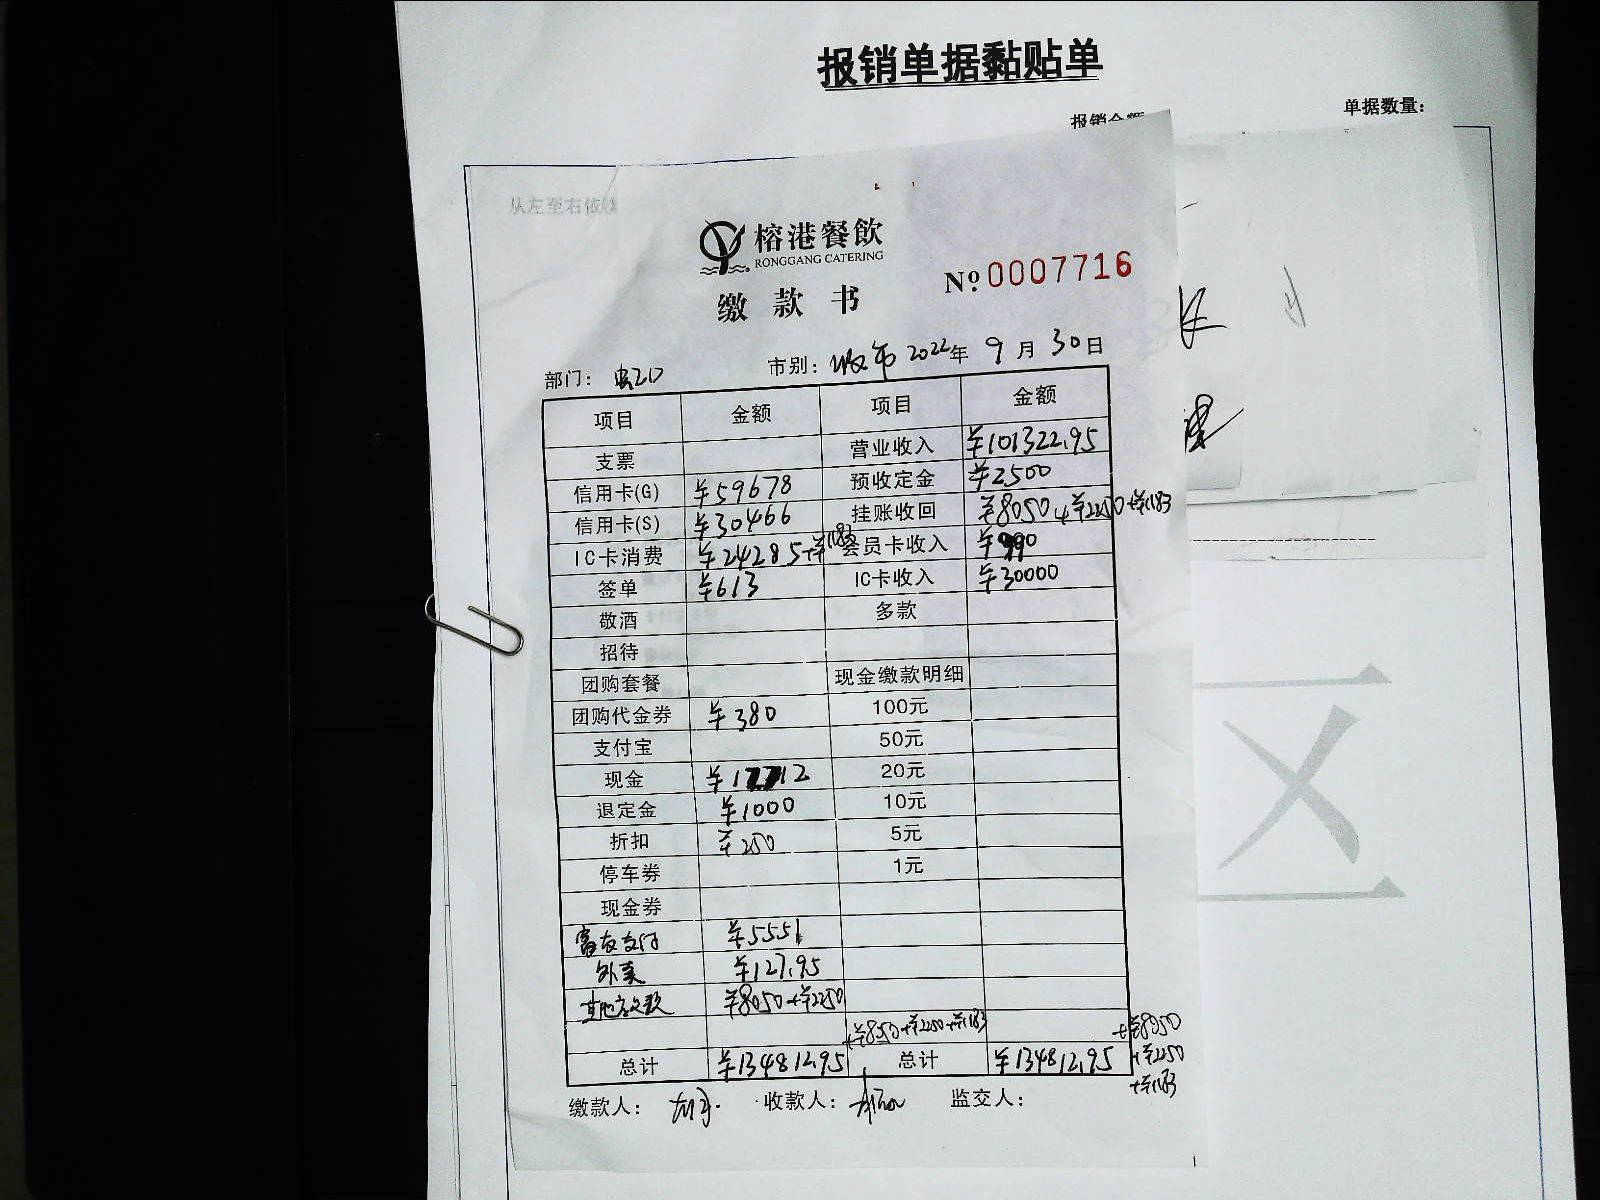 报销单据黏贴单
单据数量:
从左至右依
榕港餐飲
RONGGANG CATERING
№ 0007716
缴款书
部门: 虹口 市别: 2022年 9月 30日
项目 金额 项目 金额
支票 营业收入 ¥101322.95
信用卡(G) ¥59678 预收定金 ¥2500
信用卡(S) ¥30466 挂账收回 ¥8050+¥2250+¥1183
IC卡消费 ¥24285+¥1183 会员卡收入 ¥990
签单 ¥613 IC卡收入 ¥30000
敬酒 多款
招待
团购套餐 现金缴款明细
团购代金券 ¥380 100元
支付宝 50元
现金 20元
退定金 ¥1000 10元
折扣 ¥250 5元
停车券 1元
现金券
富友支付 ¥5551
外卖 ¥127.95
¥8050+¥2250
+¥8050+¥2250+¥1183 +¥8050
总计 ¥134812.95 总计 ¥134812.95 +¥2250
+¥1183
缴款人: 收款人: 监交人: